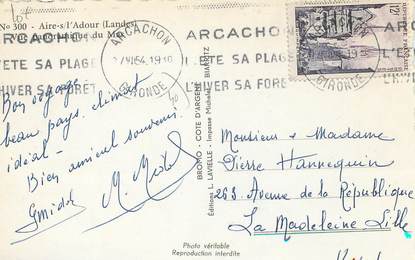 No 300 - Aire-s/l'Adour (Landes)
Vue panoramique du
ARCACHON
L'ÉTÉ SA PLAGE
L'HIVER SA FORÊT
ARCACHON
GIRONDE
ARCACHON
L'ÉTÉ SA PLAGE
L'HIVER SA FORÊT
GIRONDE
12F
Bon voyage
beau pays. climat
idéal -
Bien amical souvenir.
M.
BROMO - COTE D'ARGENT
Editions L. LAVIELLE - Impasse Michelet, BIARRITZ
Monsieur & Madame
Pierre Hannequin
263 Avenue de la République
La Madeleine Lille
Photo véritable
Reproduction interdite